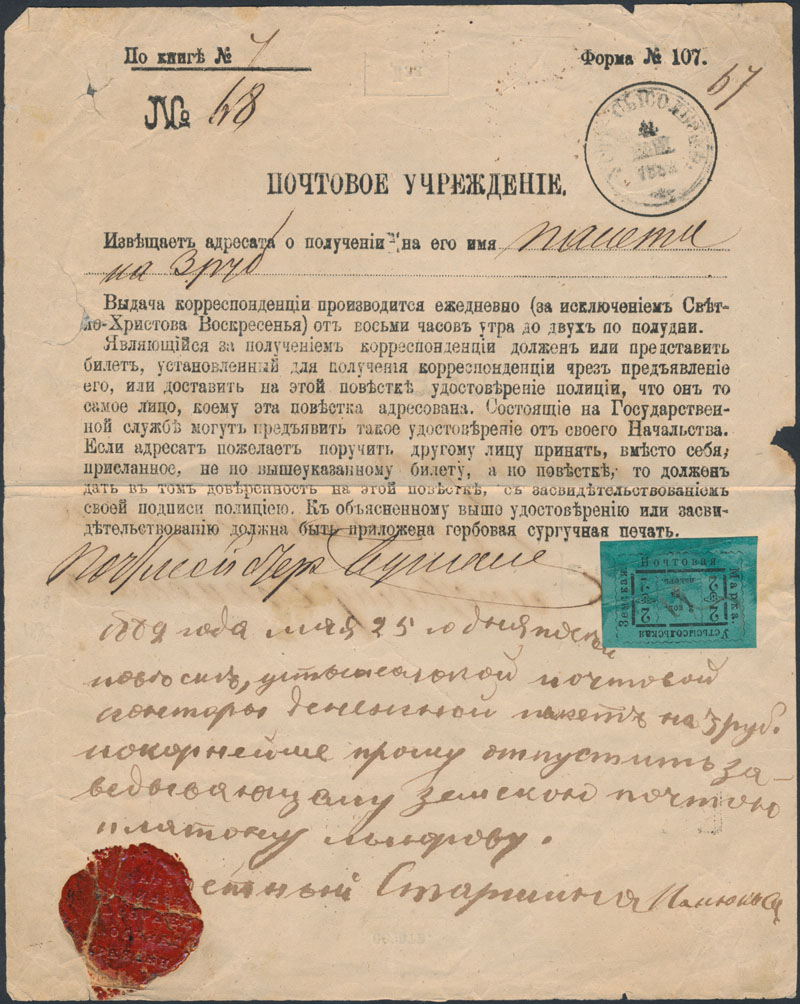 По книгѣ № 7
Форма № 107.
67
№ 68
УСТЬСЫСОЛЬСКЪ
ПОЧТОВОЕ УЧРЕЖДЕНІЕ.
Извѣщаетъ адресата о полученіи на его имя пакета
на 3 руб
Выдача корреспонденціи производится ежедневно (за исключеніемъ Свѣт-
ло-Христова Воскресенья) отъ восьми часовъ утра до двухъ по полудни.
Являющійся за полученіемъ корреспонденціи долженъ или представить
билетъ, установленный для полученія корреспонденціи чрезъ предъявленіе
его, или доставить на этой повѣсткѣ удостовѣреніе полиціи, что онъ то
самое лицо, коему эта повѣстка адресована. Состоящіе на Государствен-
ной службѣ могутъ предъявить такое удостовѣреніе отъ своего Начальства.
Если адресатъ пожелаетъ поручить другому лицу принять, вмѣсто себя,
присланное, не по вышеуказанному билету, а по повѣсткѣ, то долженъ
дать въ томъ довѣренность на этой повѣсткѣ, съ засвидѣтельствованіемъ
своей подписи полиціею. Къ объясненному выше удостовѣренію или засви-
дѣтельствованію должна быть приложена гербовая сургучная печать.
Почтмейстеръ
Марка
Земская
Почтовая
Устьсысольская
2 коп. 2
года мая 25 го дня по сей
повѣскѣ, устьсысольской почтовой
конторы денежной пакетъ на 3 руб.
покорнейше прошу отпустить за-
ведывающему земскою почтою
платону
Старшина